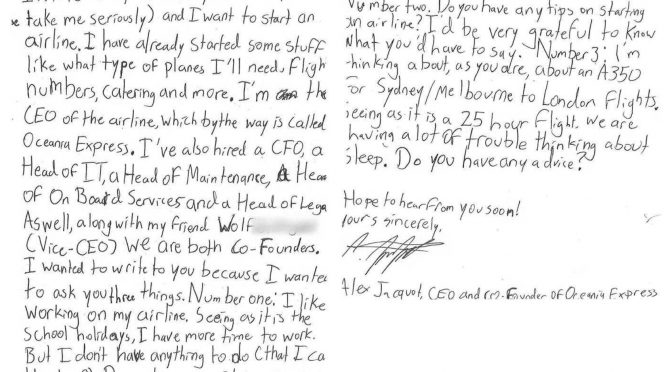 take me seriously) and I want to start an
airline. I have already started some stuff
like what type of planes I'll need, Fligh
numbers, catering and more. I'm the
CEO of the airline, which by the way is called
Oceania Express. I've also hired a CFO, a
Head of IT, a Head of Maintenance, A Hea
of On Board Services and a Head of Lega
Aswell, along with my friend Wolf
(Vice-CEO) We are both Co-Founders.
I wanted to write to you because I wante
to ask you three things. Number one: I like
working on my airline. Seeing as it is the
School holidays, I have more time to work.
But I don't have anything to do (that I ca
Number two. Do you have any tips on starting
an airline? I'd be very grateful to know
what you'd have to say. Number 3: I'm
thinking about, as you are, about an A350
for Sydney/Melbourne to London Flights.
seeing as it is a 25 hour Flight. we are
having a lot of trouble thinking about
sleep. Do you have any advice?
Hope to hear from you soon!
yours sincerely,
Alex Jacquot, CEO and co-Founder of Oceania Express